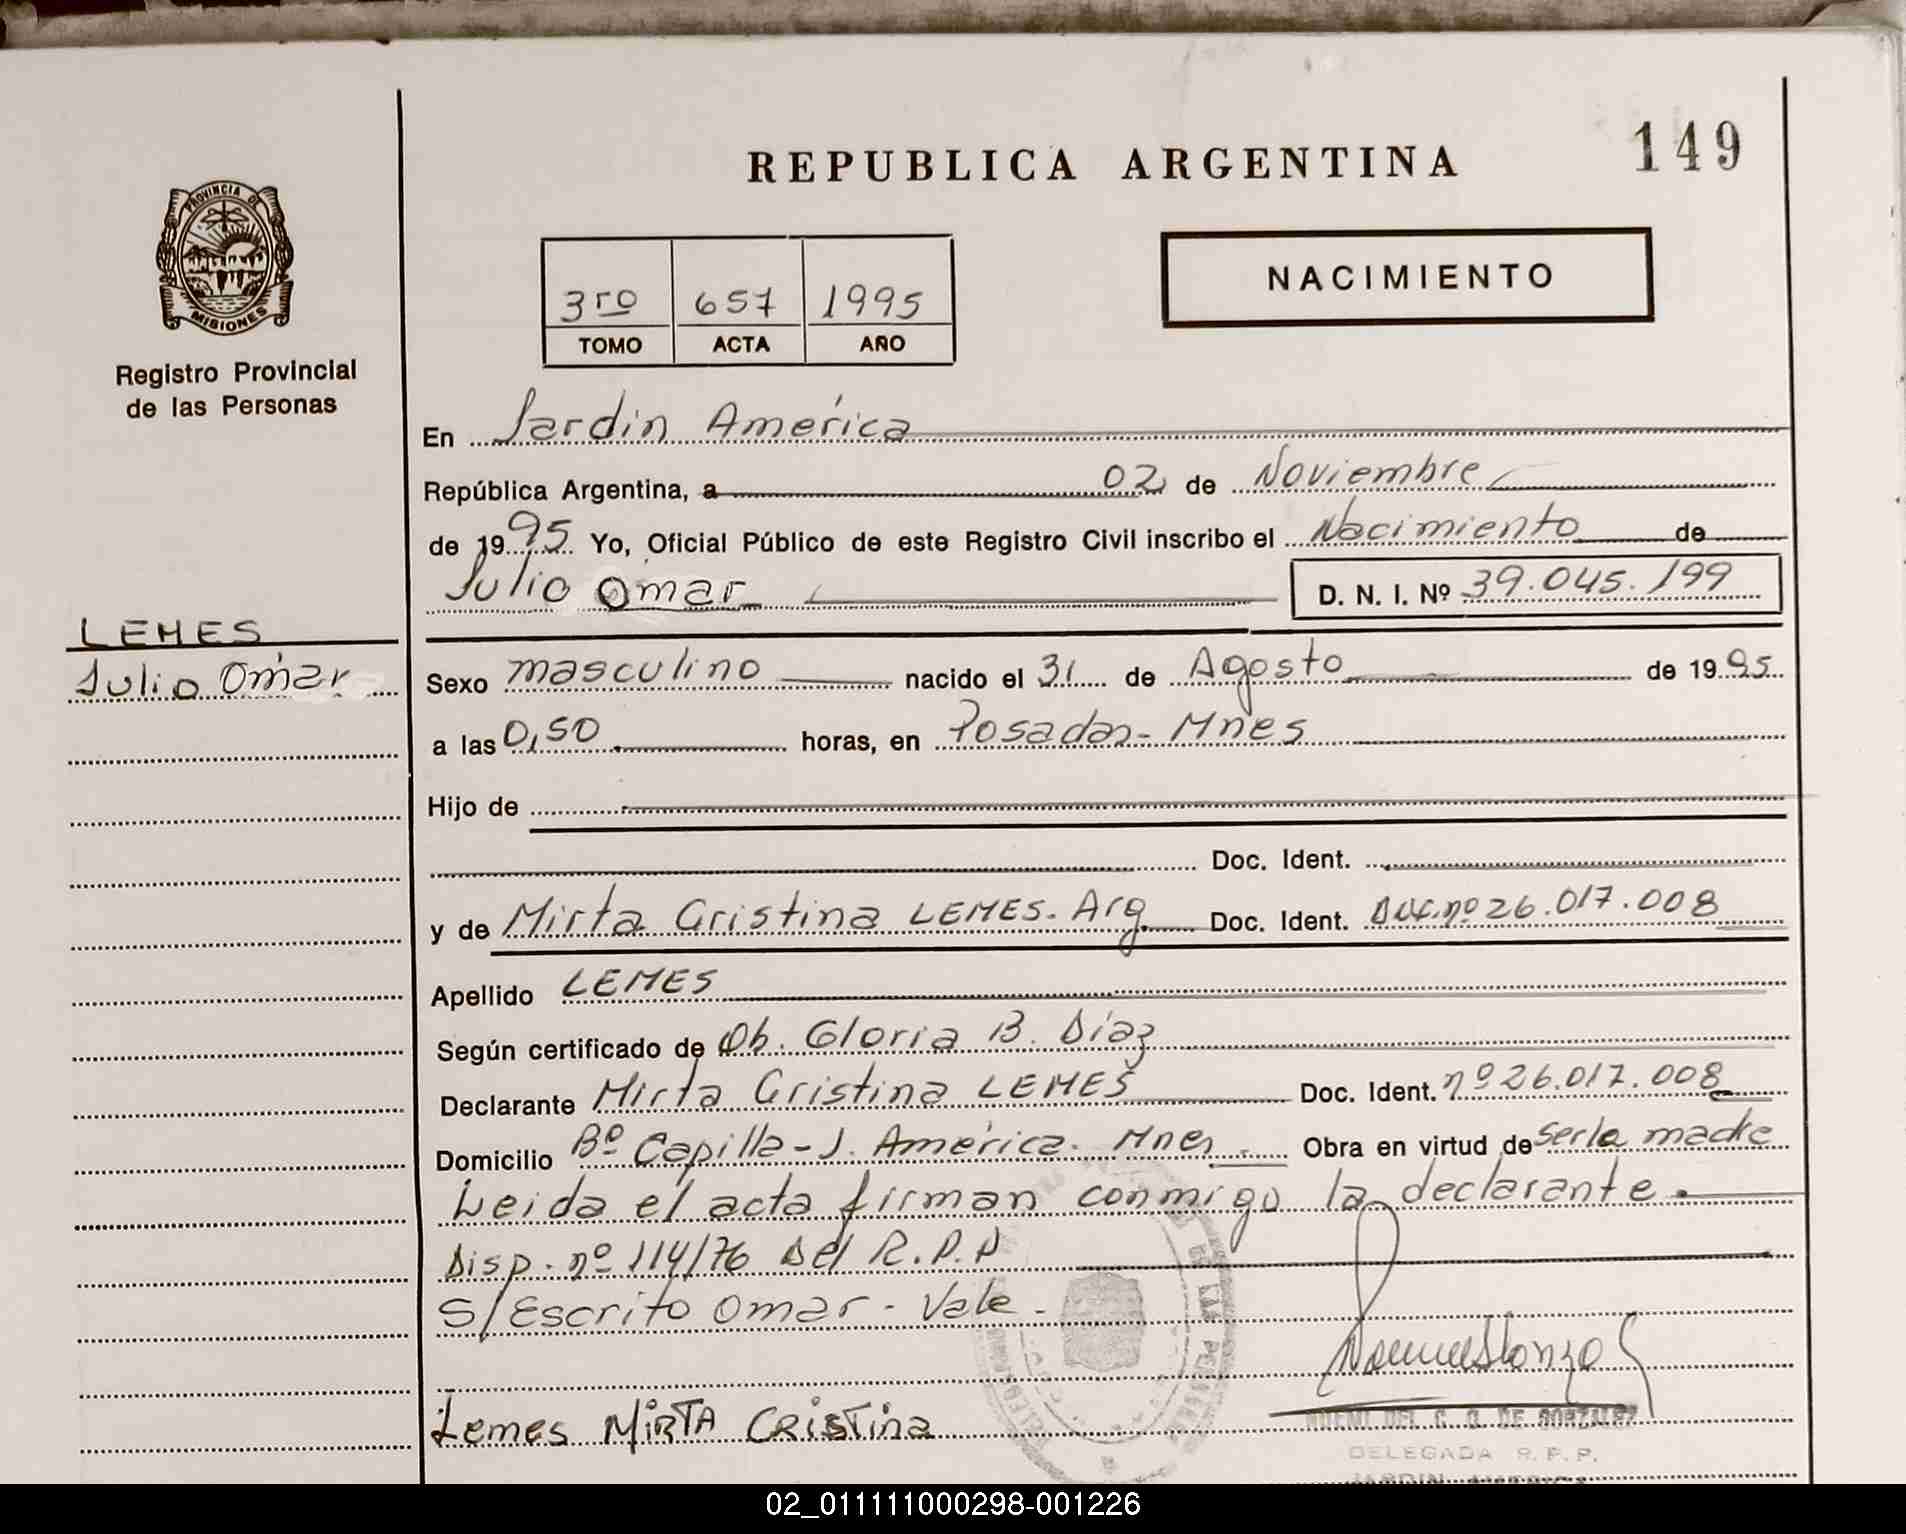 149
REPUBLICA ARGENTINA
PROVINCIA DE
MISIONES
Registro Provincial
de las Personas
3ro 657 1995
TOMO ACTA AÑO
NACIMIENTO
En Jardin América
República Argentina, a 02 de Noviembre
de 1995 Yo, Oficial Público de este Registro Civil inscribo el Nacimiento de
Julio Omar D. N. I. Nº 39.045.199
LEMES
Julio Omar
Sexo masculino nacido el 31 de Agosto de 1995
a las 0,50 horas, en Posadas - Mnes
Hijo de
Doc. Ident.
y de Mirta Cristina LEMES. Arg. Doc. Ident. nº 26.017.008
Apellido LEMES
Según certificado de Ob. Gloria B. Diaz
Declarante Mirta Cristina LEMES Doc. Ident. nº 26.017.008
Domicilio Bº Capilla - J. América. Mnes. Obra en virtud de ser la madre
Leida el acta firman conmigo la declarante.
Disp. nº 114/76 Del R.P.P
S/Escrito Omar - Vale.
Lemes MIRTA CRISTINA
DE GONZALEZ
DELEGADA R.P.P.
JARDIN AMERICA
02_011111000298-001226